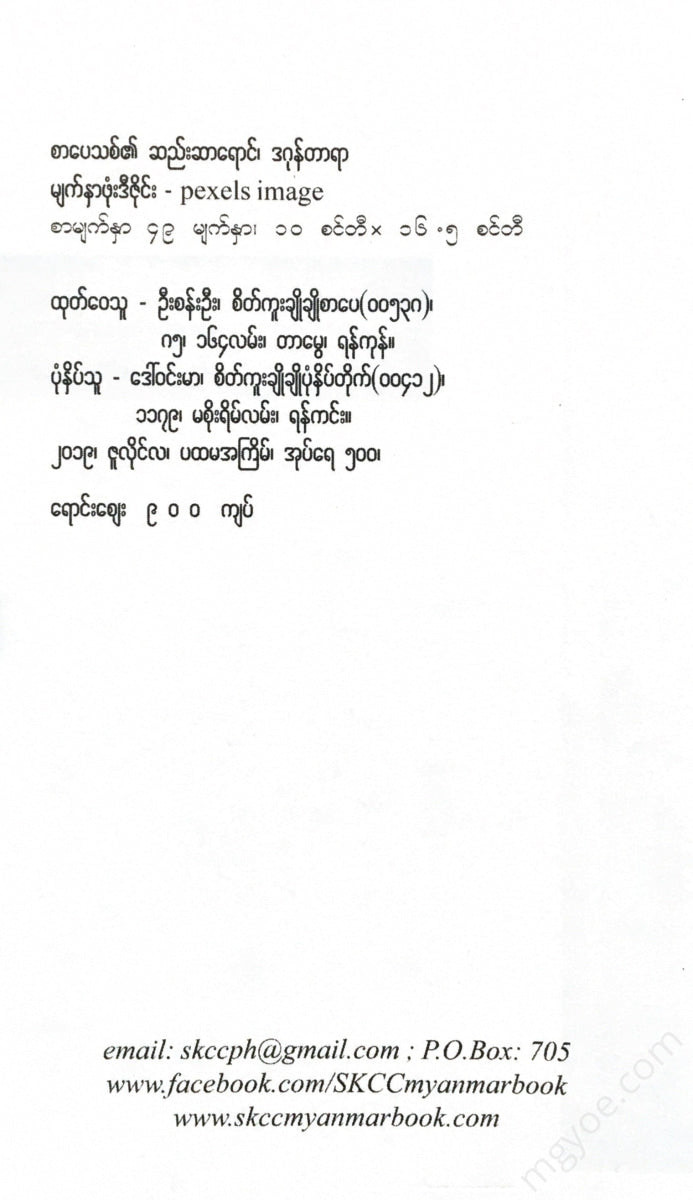 စာပေသစ်၏ ဆည်းဆာရောင်၊ ဒဂုန်တာရာ
မျက်နှာဖုံးဒီဇိုင်း - pexels image
စာမျက်နှာ ၄၉ မျက်နှာ၊ ၁၀ စင်တီ× ၁၆.၅ စင်တီ
ထုတ်ဝေသူ - ဦးစန်းဦး၊ စိတ်ကူးချိုချိုစာပေ(၀၀၅၃၈)၊
၈၅၊ ၁၆၄လမ်း၊ တာမွေ၊ ရန်ကုန်။
ပုံနှိပ်သူ - ဒေါ်ဝင်းမာ၊ စိတ်ကူးချိုချိုပုံနှိပ်တိုက်(၀၀၄၁၂)၊
၁၁၇၉၊ မစိုးရိမ်လမ်း၊ ရန်ကင်း။
၂၀၁၉၊ ဇူလိုင်လ၊ ပထမအကြိမ်၊ အုပ်ရေ ၅၀၀၊
ရောင်းဈေး ၉ ၀ ၀ ကျပ်
email: skccph@gmail.com ; P.O.Box: 705
www.facebook.com/SKCCmyanmarbook
www.skccmyanmarbook.com
mgyoe.com